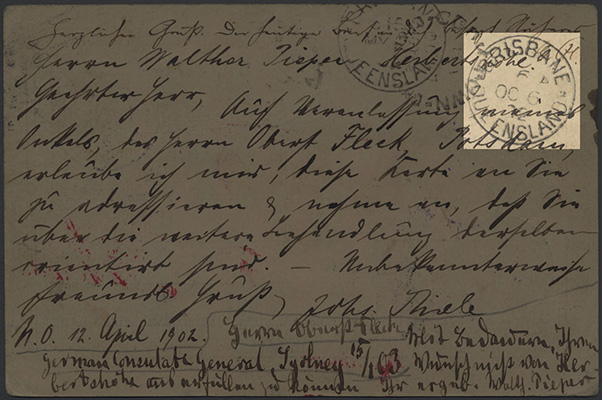 Herzlichen Gruß. Der heutige
Herrn Walther Pieper Herbertshöhe.
Geehrter Herr,
Auf Veranlassung meines
Onkels des Herrn Oberst Fleck, Potsdam,
erlaube ich mir, diese Karte an Sie
zu adressieren & nehme an, daß Sie
über die weitere Behandlung derselben
orientirt sind. — Unbekannterweise
freundl Gruß, Johs. Thiele
N.O. 12. April 1902. Herrn Oberst Fleck Mit Bedauern, Ihren
German Consulate General, Sydney 15/1 03 Wunsch nicht von Her-
bertshöhe aus erfüllen zu können Ihr ergeb. Walth. Pieper
BRISBANE
OC 6
QUEENSLAND
EENSLAN